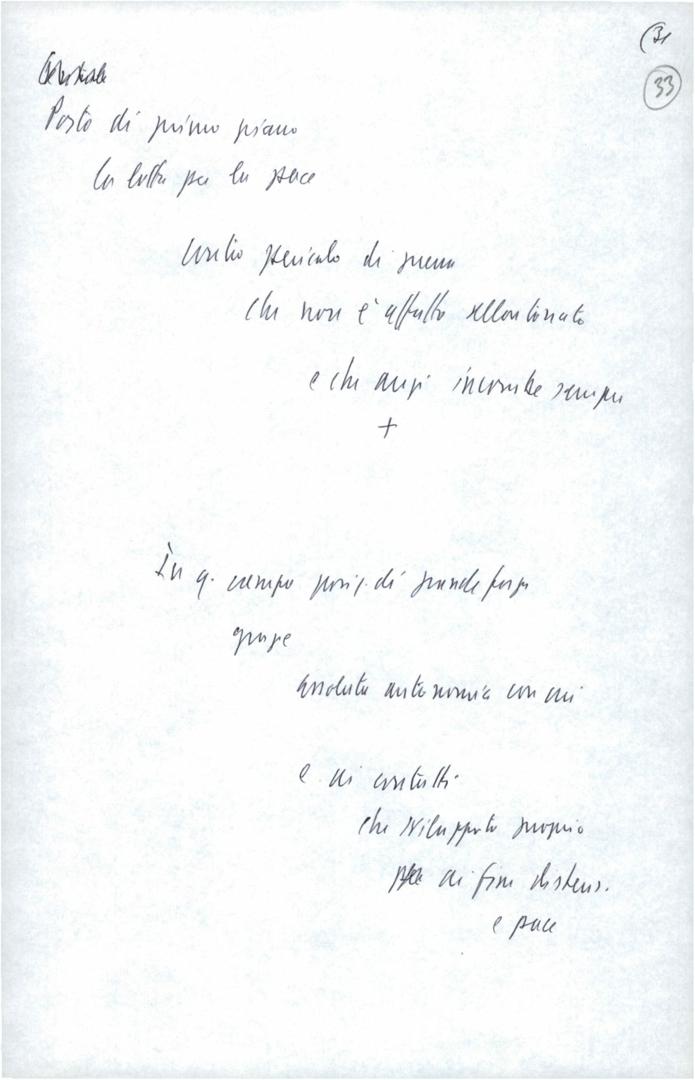 (31
33
Posto di primo piano
la lotta per la pace
Contro pericolo di guerra
che non è affatto allontanato
e che anzi incombe sempre
+
In q. campo posiz. di grande forza
grazie
assoluta autonomia con cui
e ai contatti
che sviluppato proprio
ai fini distens.
e pace